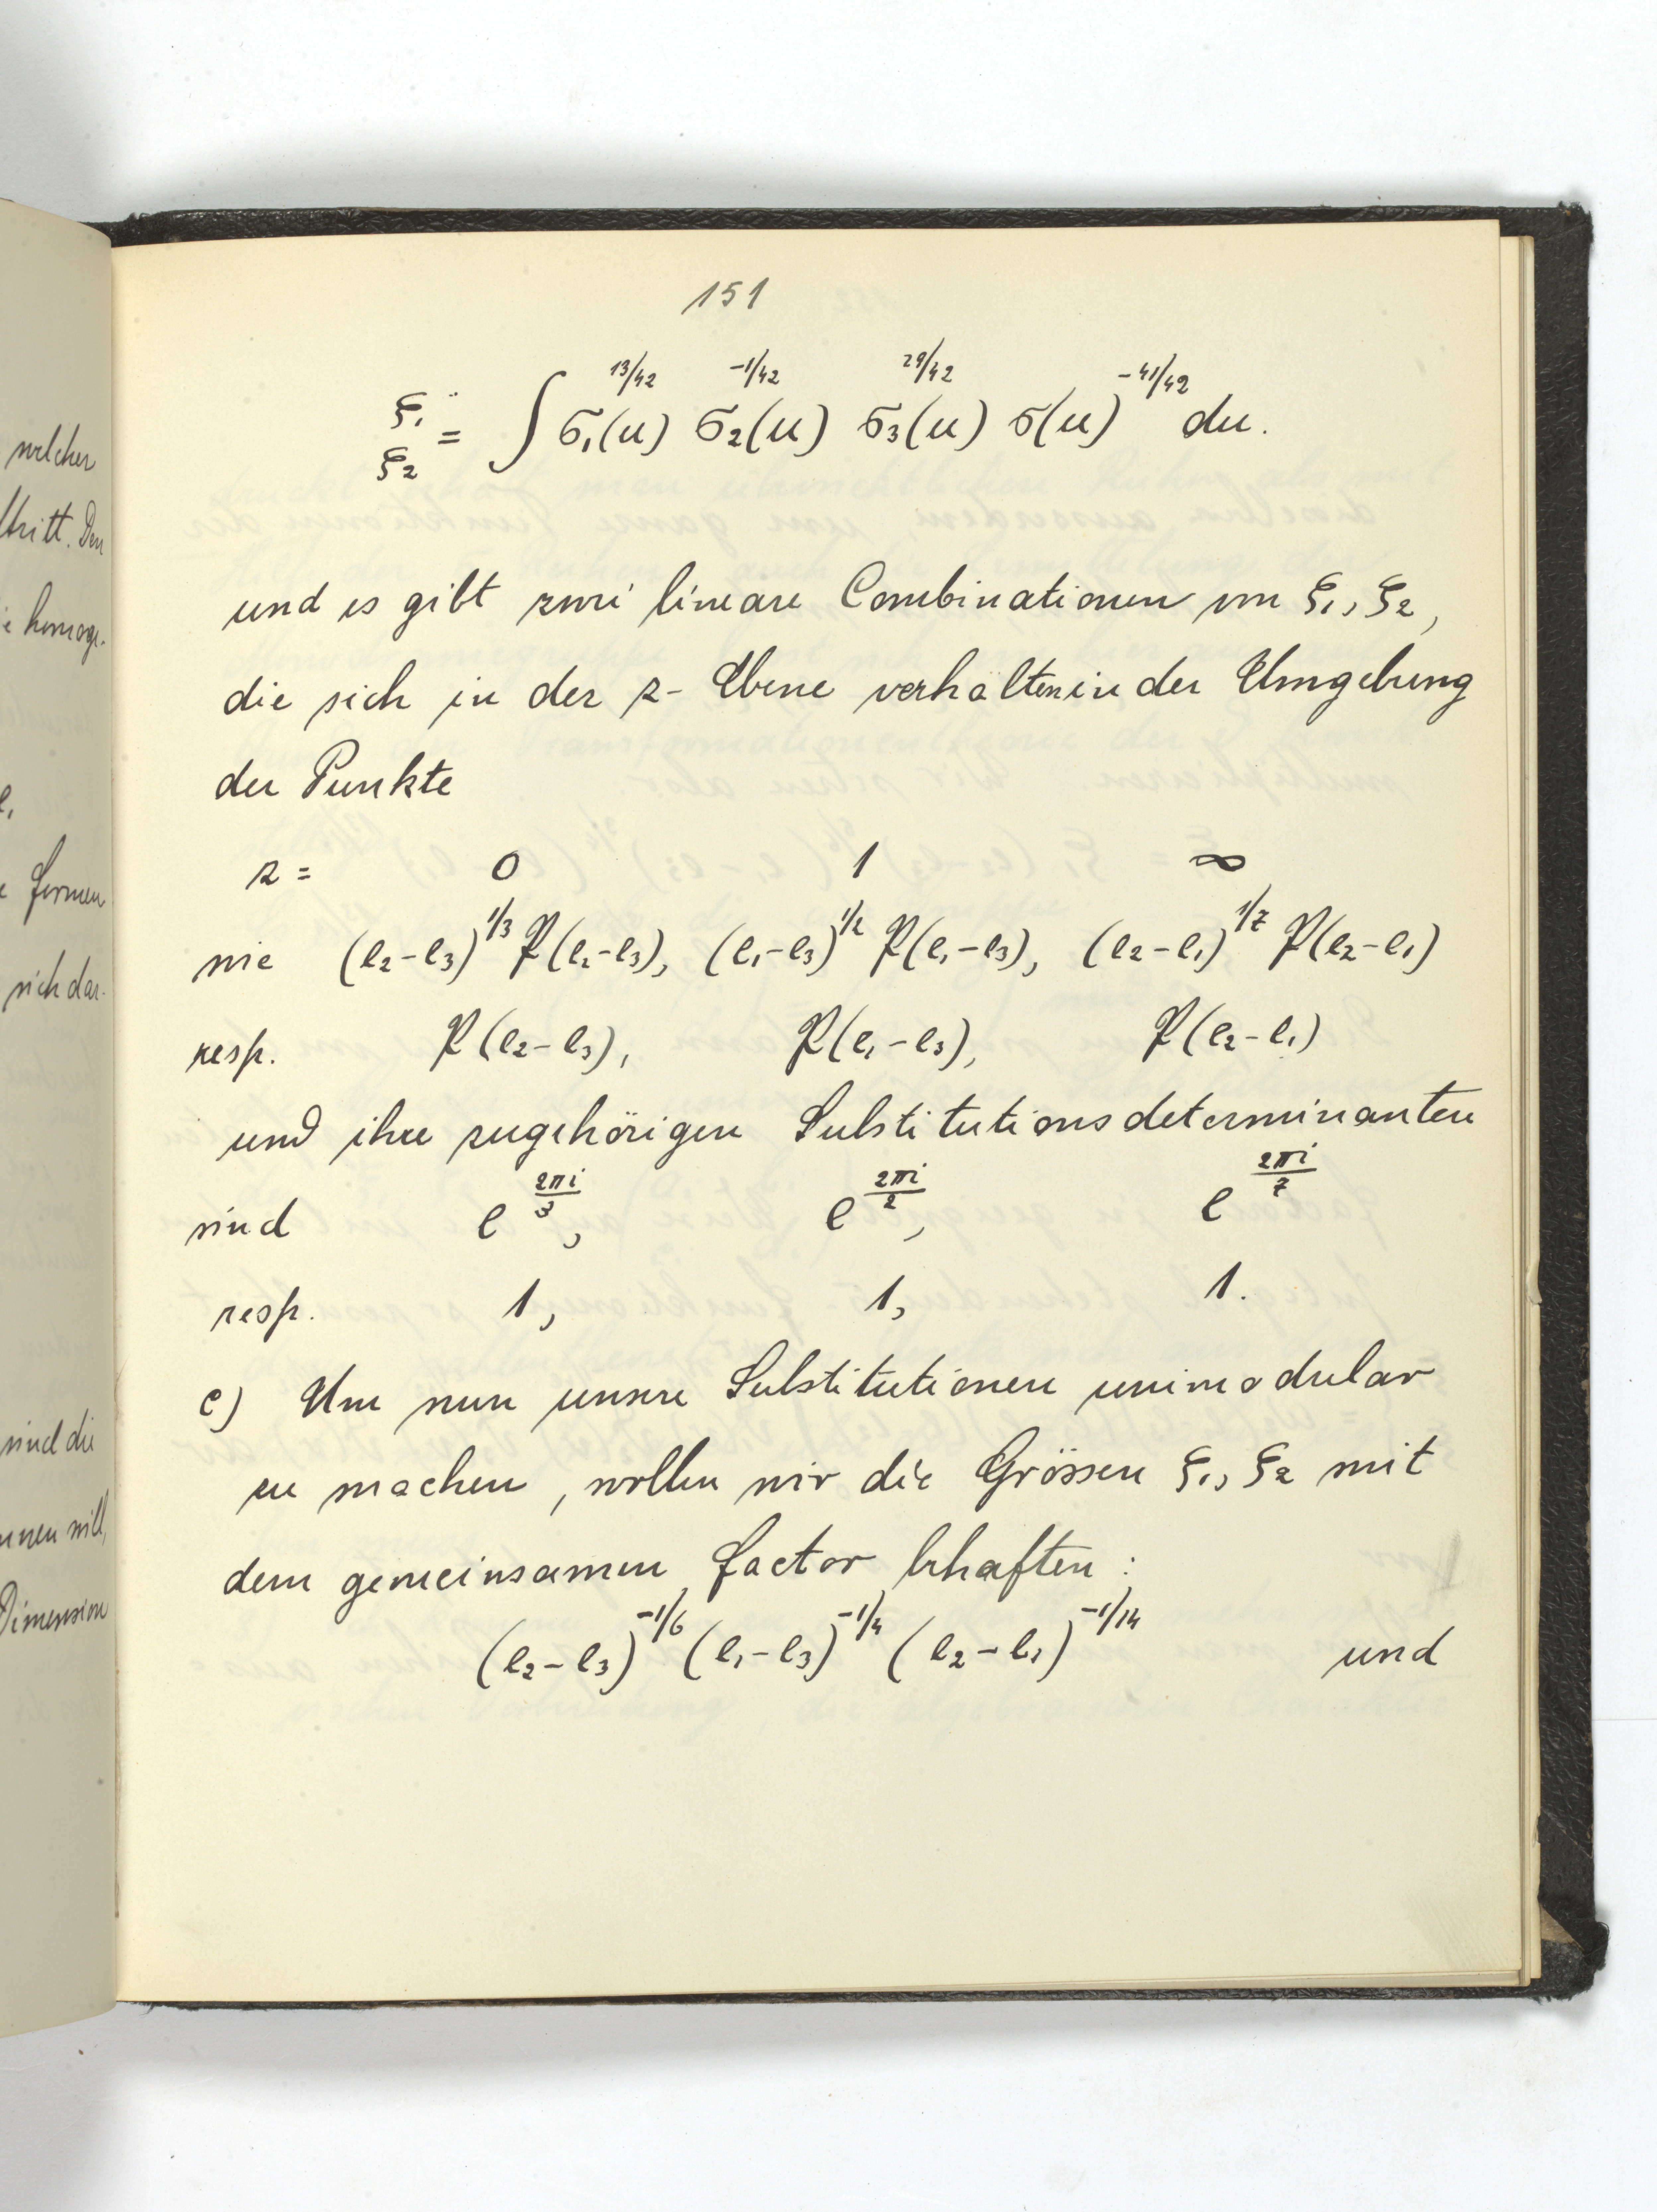 welcher
tritt. Den
homoge-
e,
formen
sich dar-
sind die
nnen will,
Dimension
151
ξ₁ ξ₂ = ∫ σ₁(u)^{13/42} σ₂(u)^{-1/42} σ₃(u)^{29/42} σ(u)^{-41/42} du.
und es gibt zwei lineare Combinationen von ξ₁, ξ₂,
die sich in der z-Ebene verhalten in der Umgebung
der Punkte
z = 0 1 ∞
wie (e₂-e₃)^{1/3} P(e₂-e₃), (e₁-e₃)^{1/2} P(e₁-e₃), (e₂-e₁)^{1/7} P(e₂-e₁)
resp. P(e₂-e₃), P(e₁-e₃), P(e₂-e₁)
und ihre zugehörigen Substitutionsdeterminanten
sind e^{2πi/3}, e^{2πi/2}, e^{2πi/7}
resp. 1, 1, 1.
c) Um nun unsere Substitutionen unimodular
zu machen, wollen wir die Grössen ξ₁, ξ₂ mit
dem gemeinsamen Factor behaften:
(e₂-e₃)^{-1/6} (e₁-e₃)^{-1/4} (e₂-e₁)^{-1/14} und